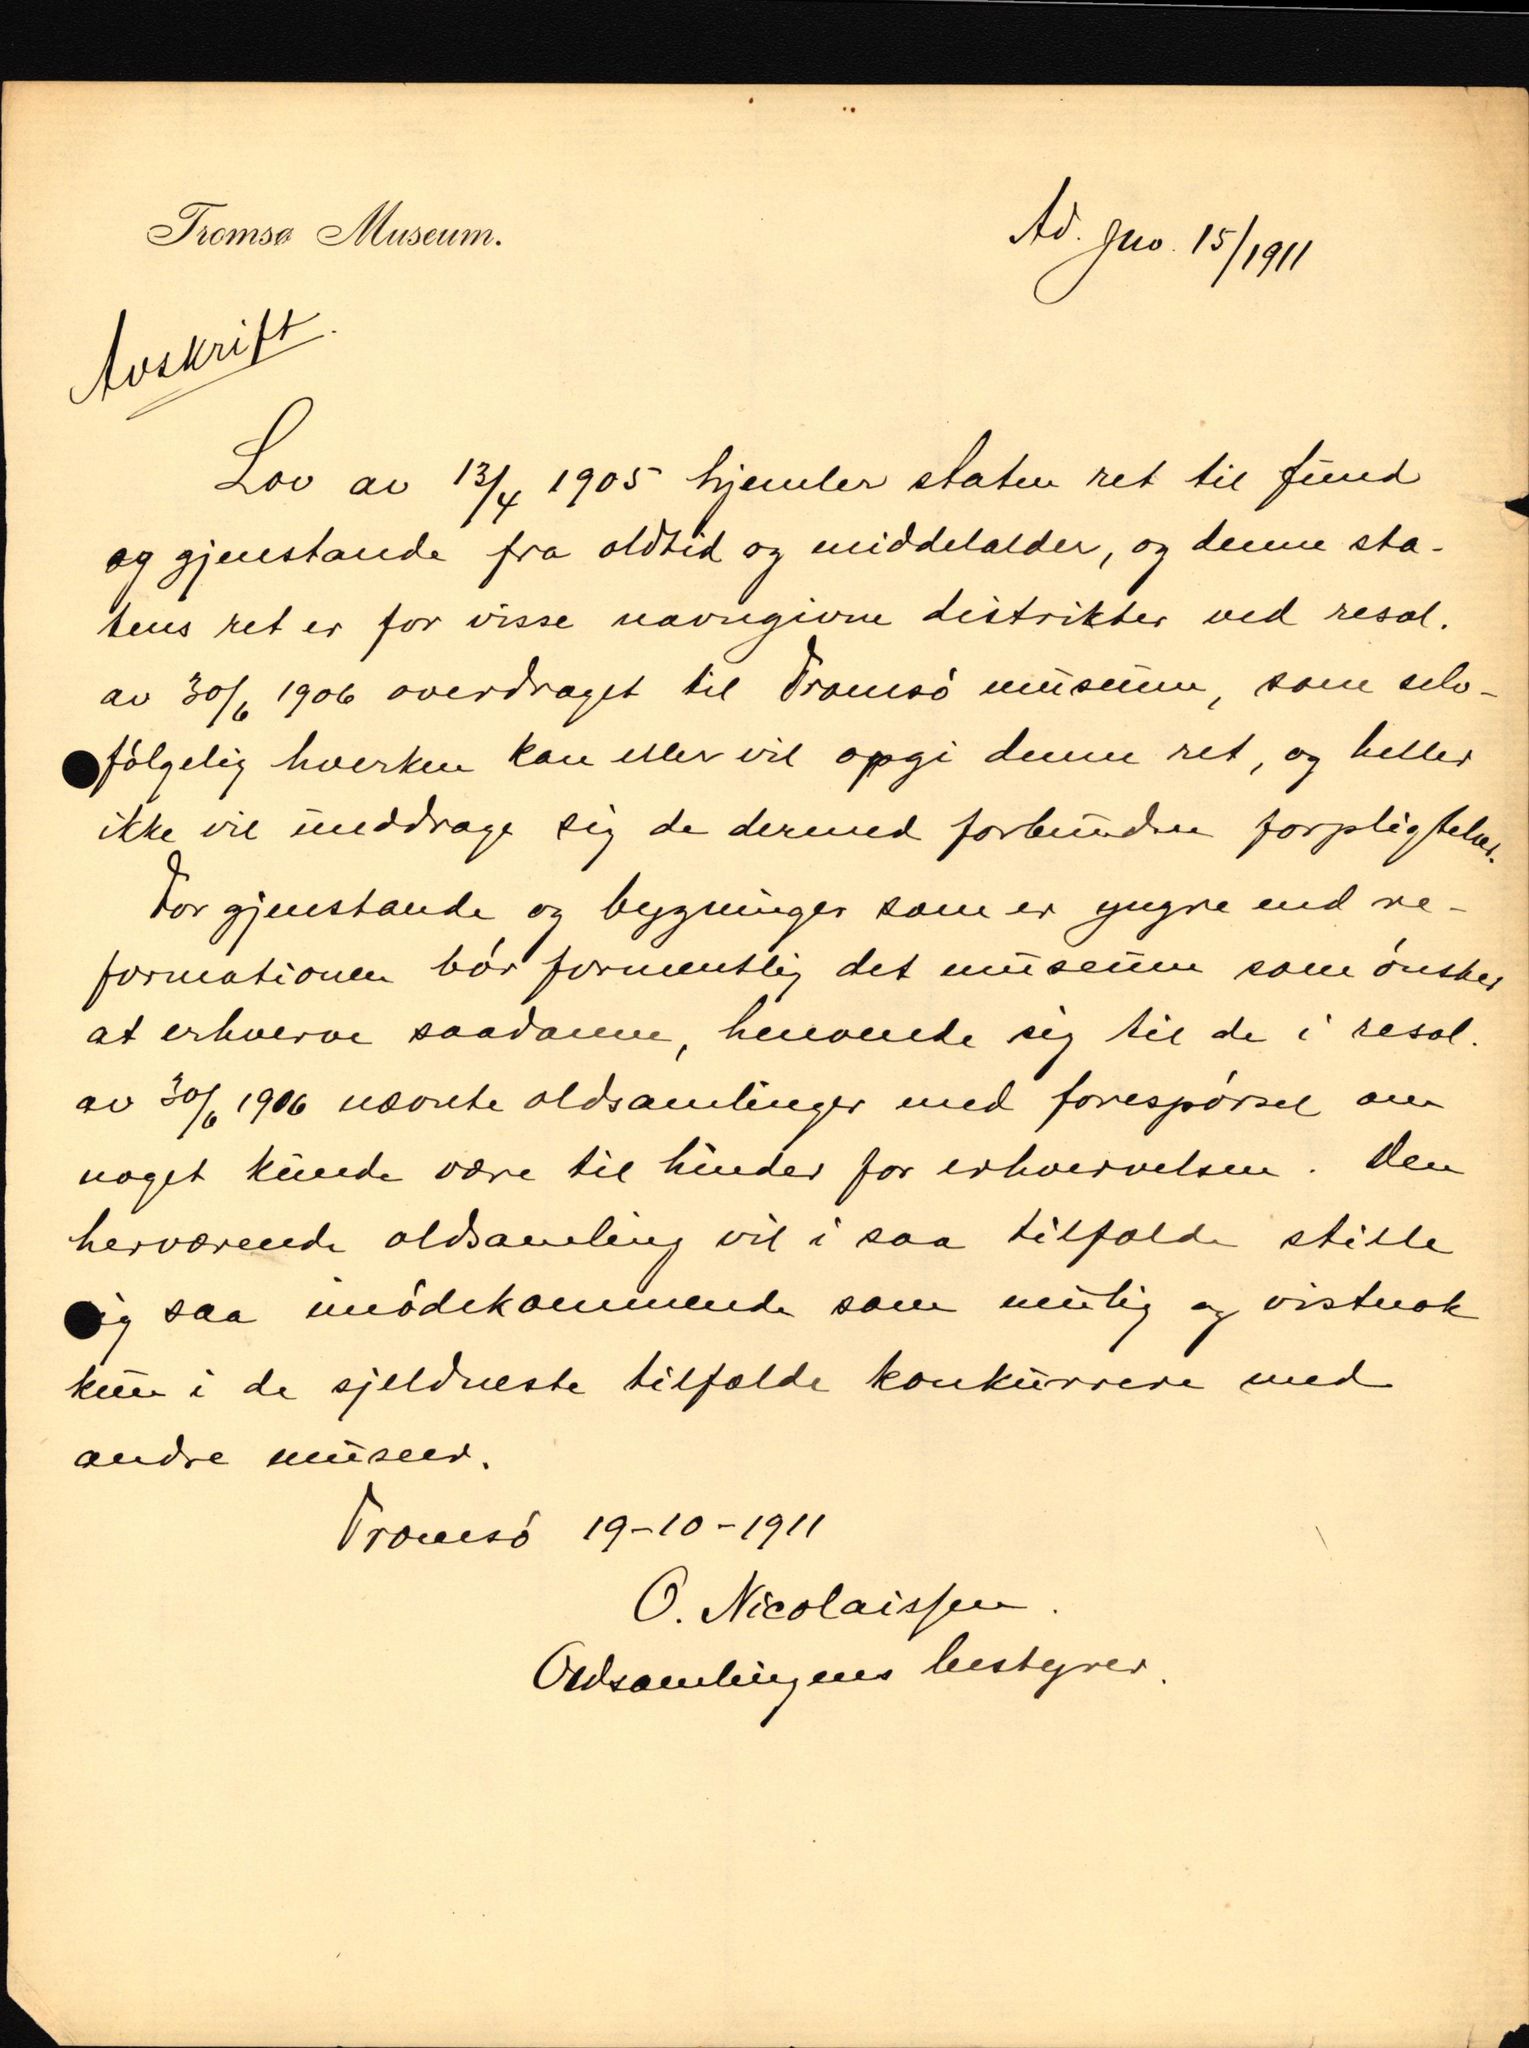 Tromsø Museum.
Ad. Jno. 15/1911
Avskrift.
Lov av 13/4 1905 hjemler staten ret til fund
og gjenstande fra oldtid og middelalder, og denne sta-
tens ret er for visse navngivne distrikter ved resol.
av 30/6 1906 overdraget til Tromsö museum, som selv-
fölgelig hverken kan eller vil opgi denne ret, og heller
ikke vil unddrage sig de dermed forbundne forpligtelser.
For gjenstande og bygninger som er yngre end re-
formationen bör formentlig det museum som önsker
at erhverve saadanne, henvende sig til de i resol.
av 30/6 1906 nævnte oldsamlinger med forespörsel om
noget kunde være til hinder for erhvervelsen. Den
herværende oldsamling vil i saa tilfælde stille
sig saa imödekommende som mulig og vistnok
kun i de sjeldneste tilfælde konkurrere med
andre museer.
Tromsö 19-10-1911
O. Nicolaissen.
Oldsamlingens bestyrer.